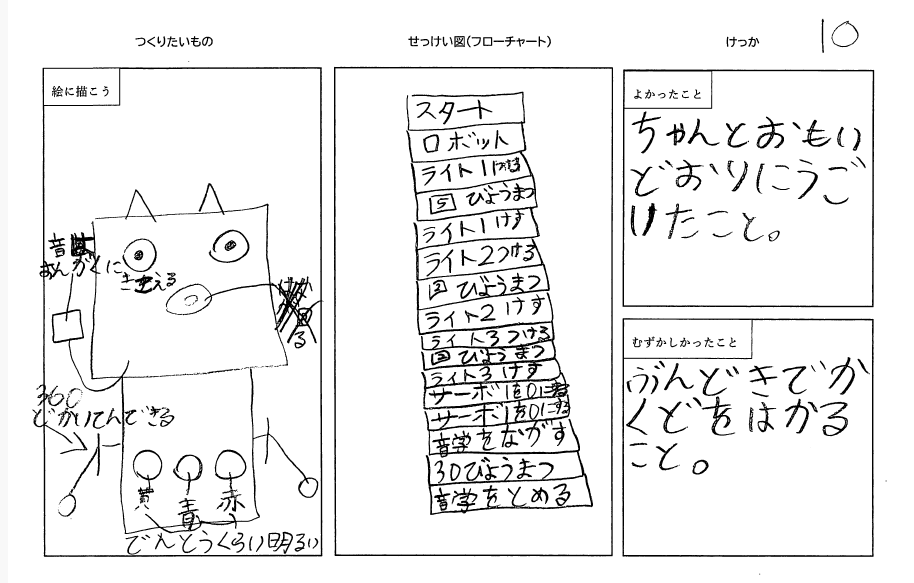 つくりたいもの
せっけい図(フローチャート)
けっか
10
絵に描こう
音
おんがくに
きこえる
る
360
どかいてんできる
黄
青
赤
でんとうくらい明るい
スタート
ロボット
ライト1つける
5 びょうまつ
ライト1けす
ライト2つける
びょうまつ
ライト2 けす
ライト3つける
びょうまつ
ライト3 けす
サーボ1を0にする
サーボ1を0にする
音学をながす
30びょうまつ
音学をとめる
よかったこと
ちゃんとおもい
どおりにうご
けたこと。
むずかしかったこと
ぶんどきでか
くどをはかる
こと。